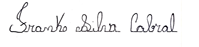 Franko Silva Cabral